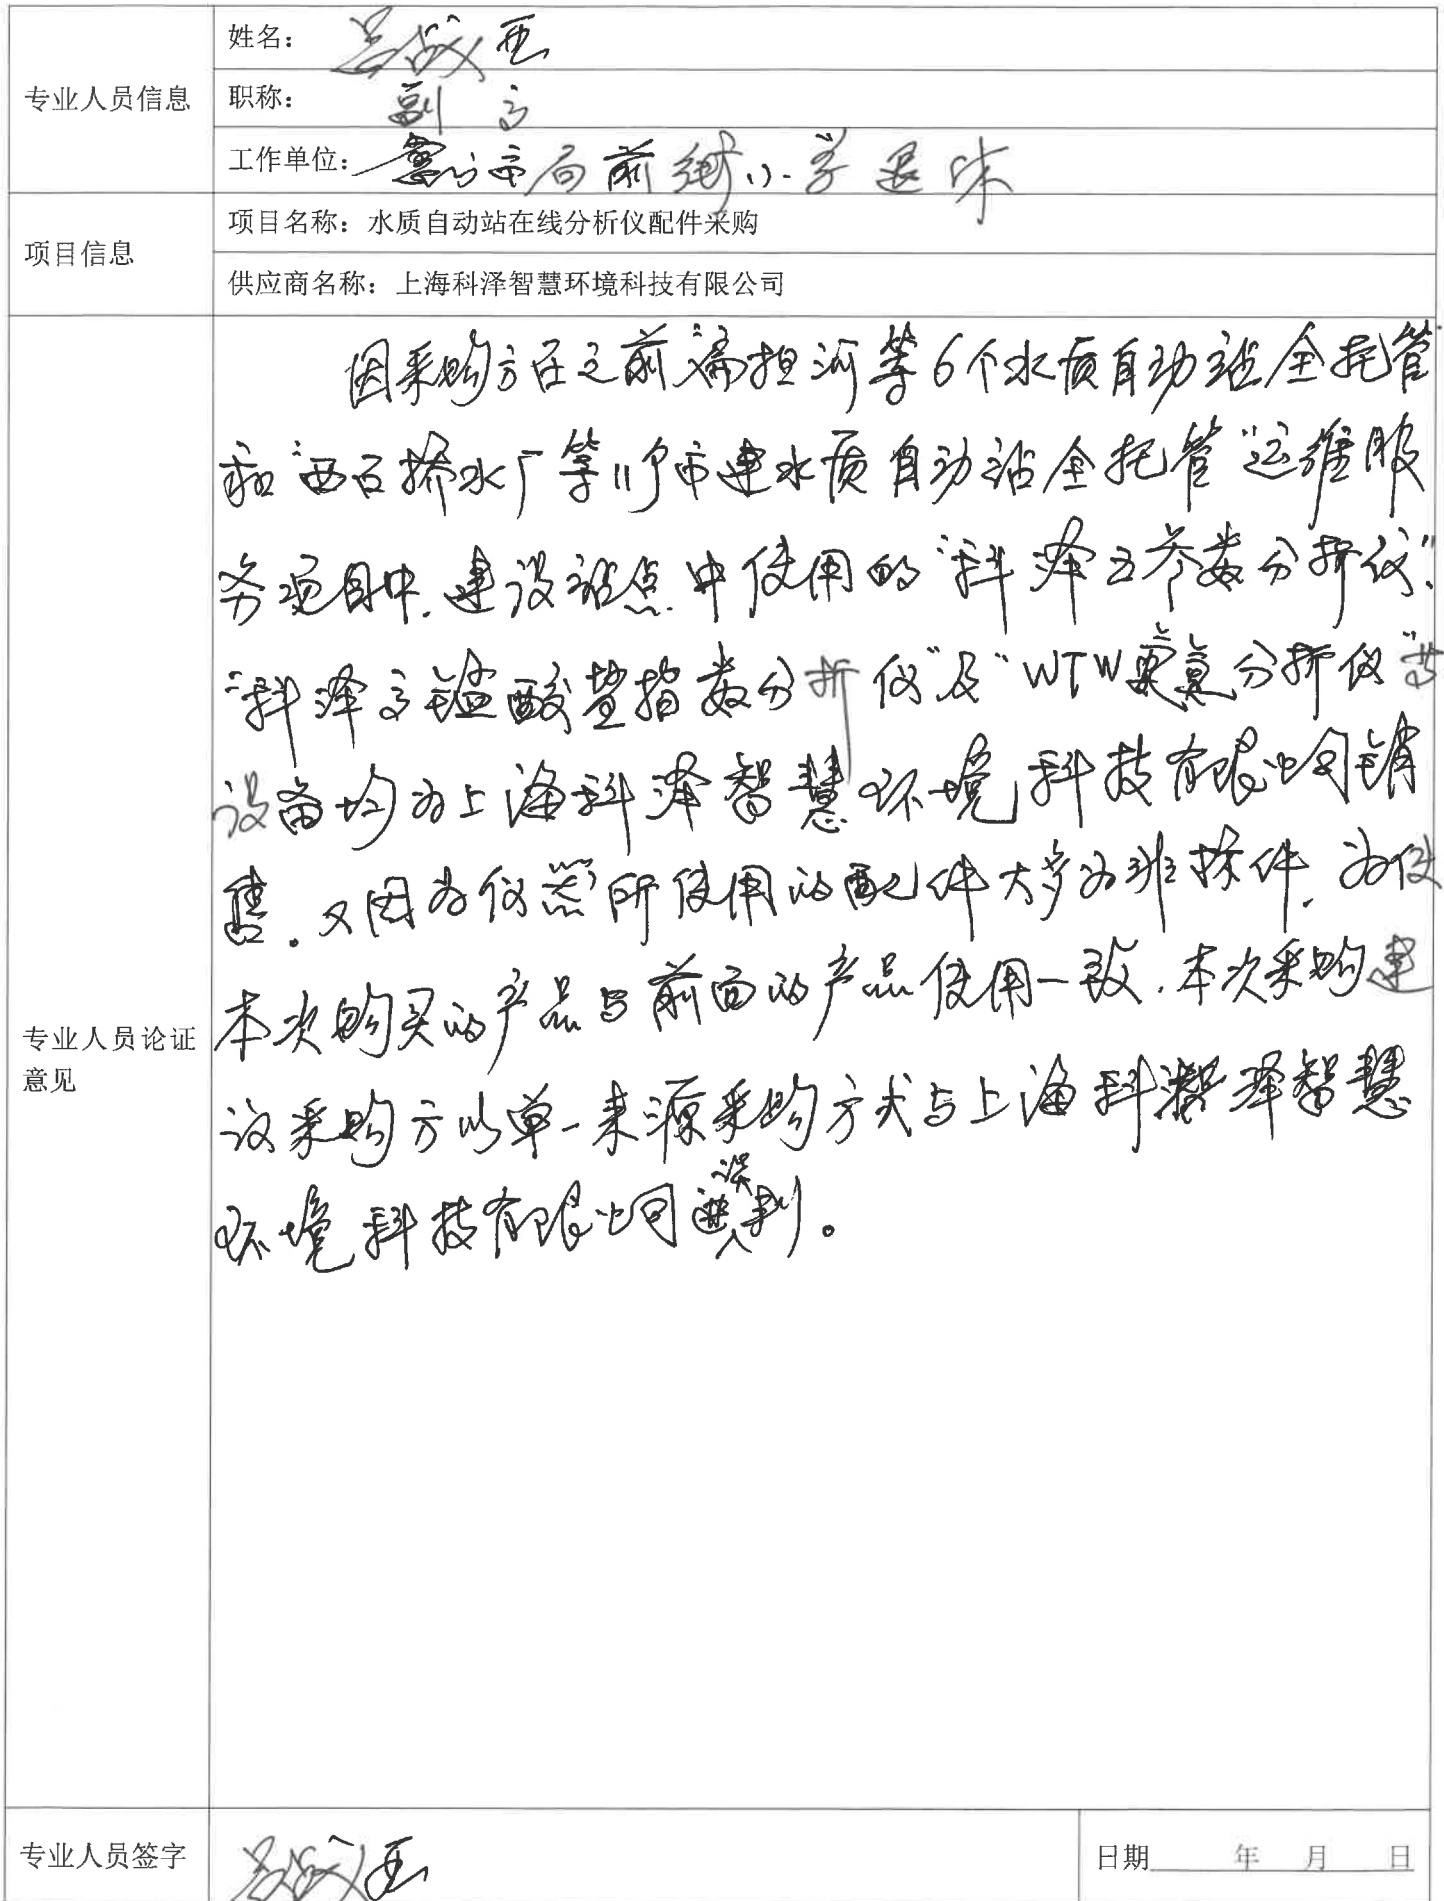 专业人员信息
姓名：吴成亚
职称：副高
工作单位：常州市局前街小学退休
项目信息
项目名称：水质自动站在线分析仪配件采购
供应商名称：上海科泽智慧环境科技有限公司
专业人员论证意见
因采购方在之前“扁担河等6个水质自动站全托管
和“西石桥水厂等11个市建水质自动站全托管”运维服
务项目中，建设站点中使用的“科泽五参数分析仪”
“科泽高锰酸盐指数分析仪”及“WTW氨氮分析仪”等
设备均为上海科泽智慧环境科技有限公司销
售。又因为仪器所使用的配件大多为非标件，为使
本次购买的产品与前面的产品使用一致，本次采购建
议采购方以单一来源采购方式与上海科泽智慧
环境科技有限公司进谈判。
专业人员签字
吴成亚
日期 年 月 日